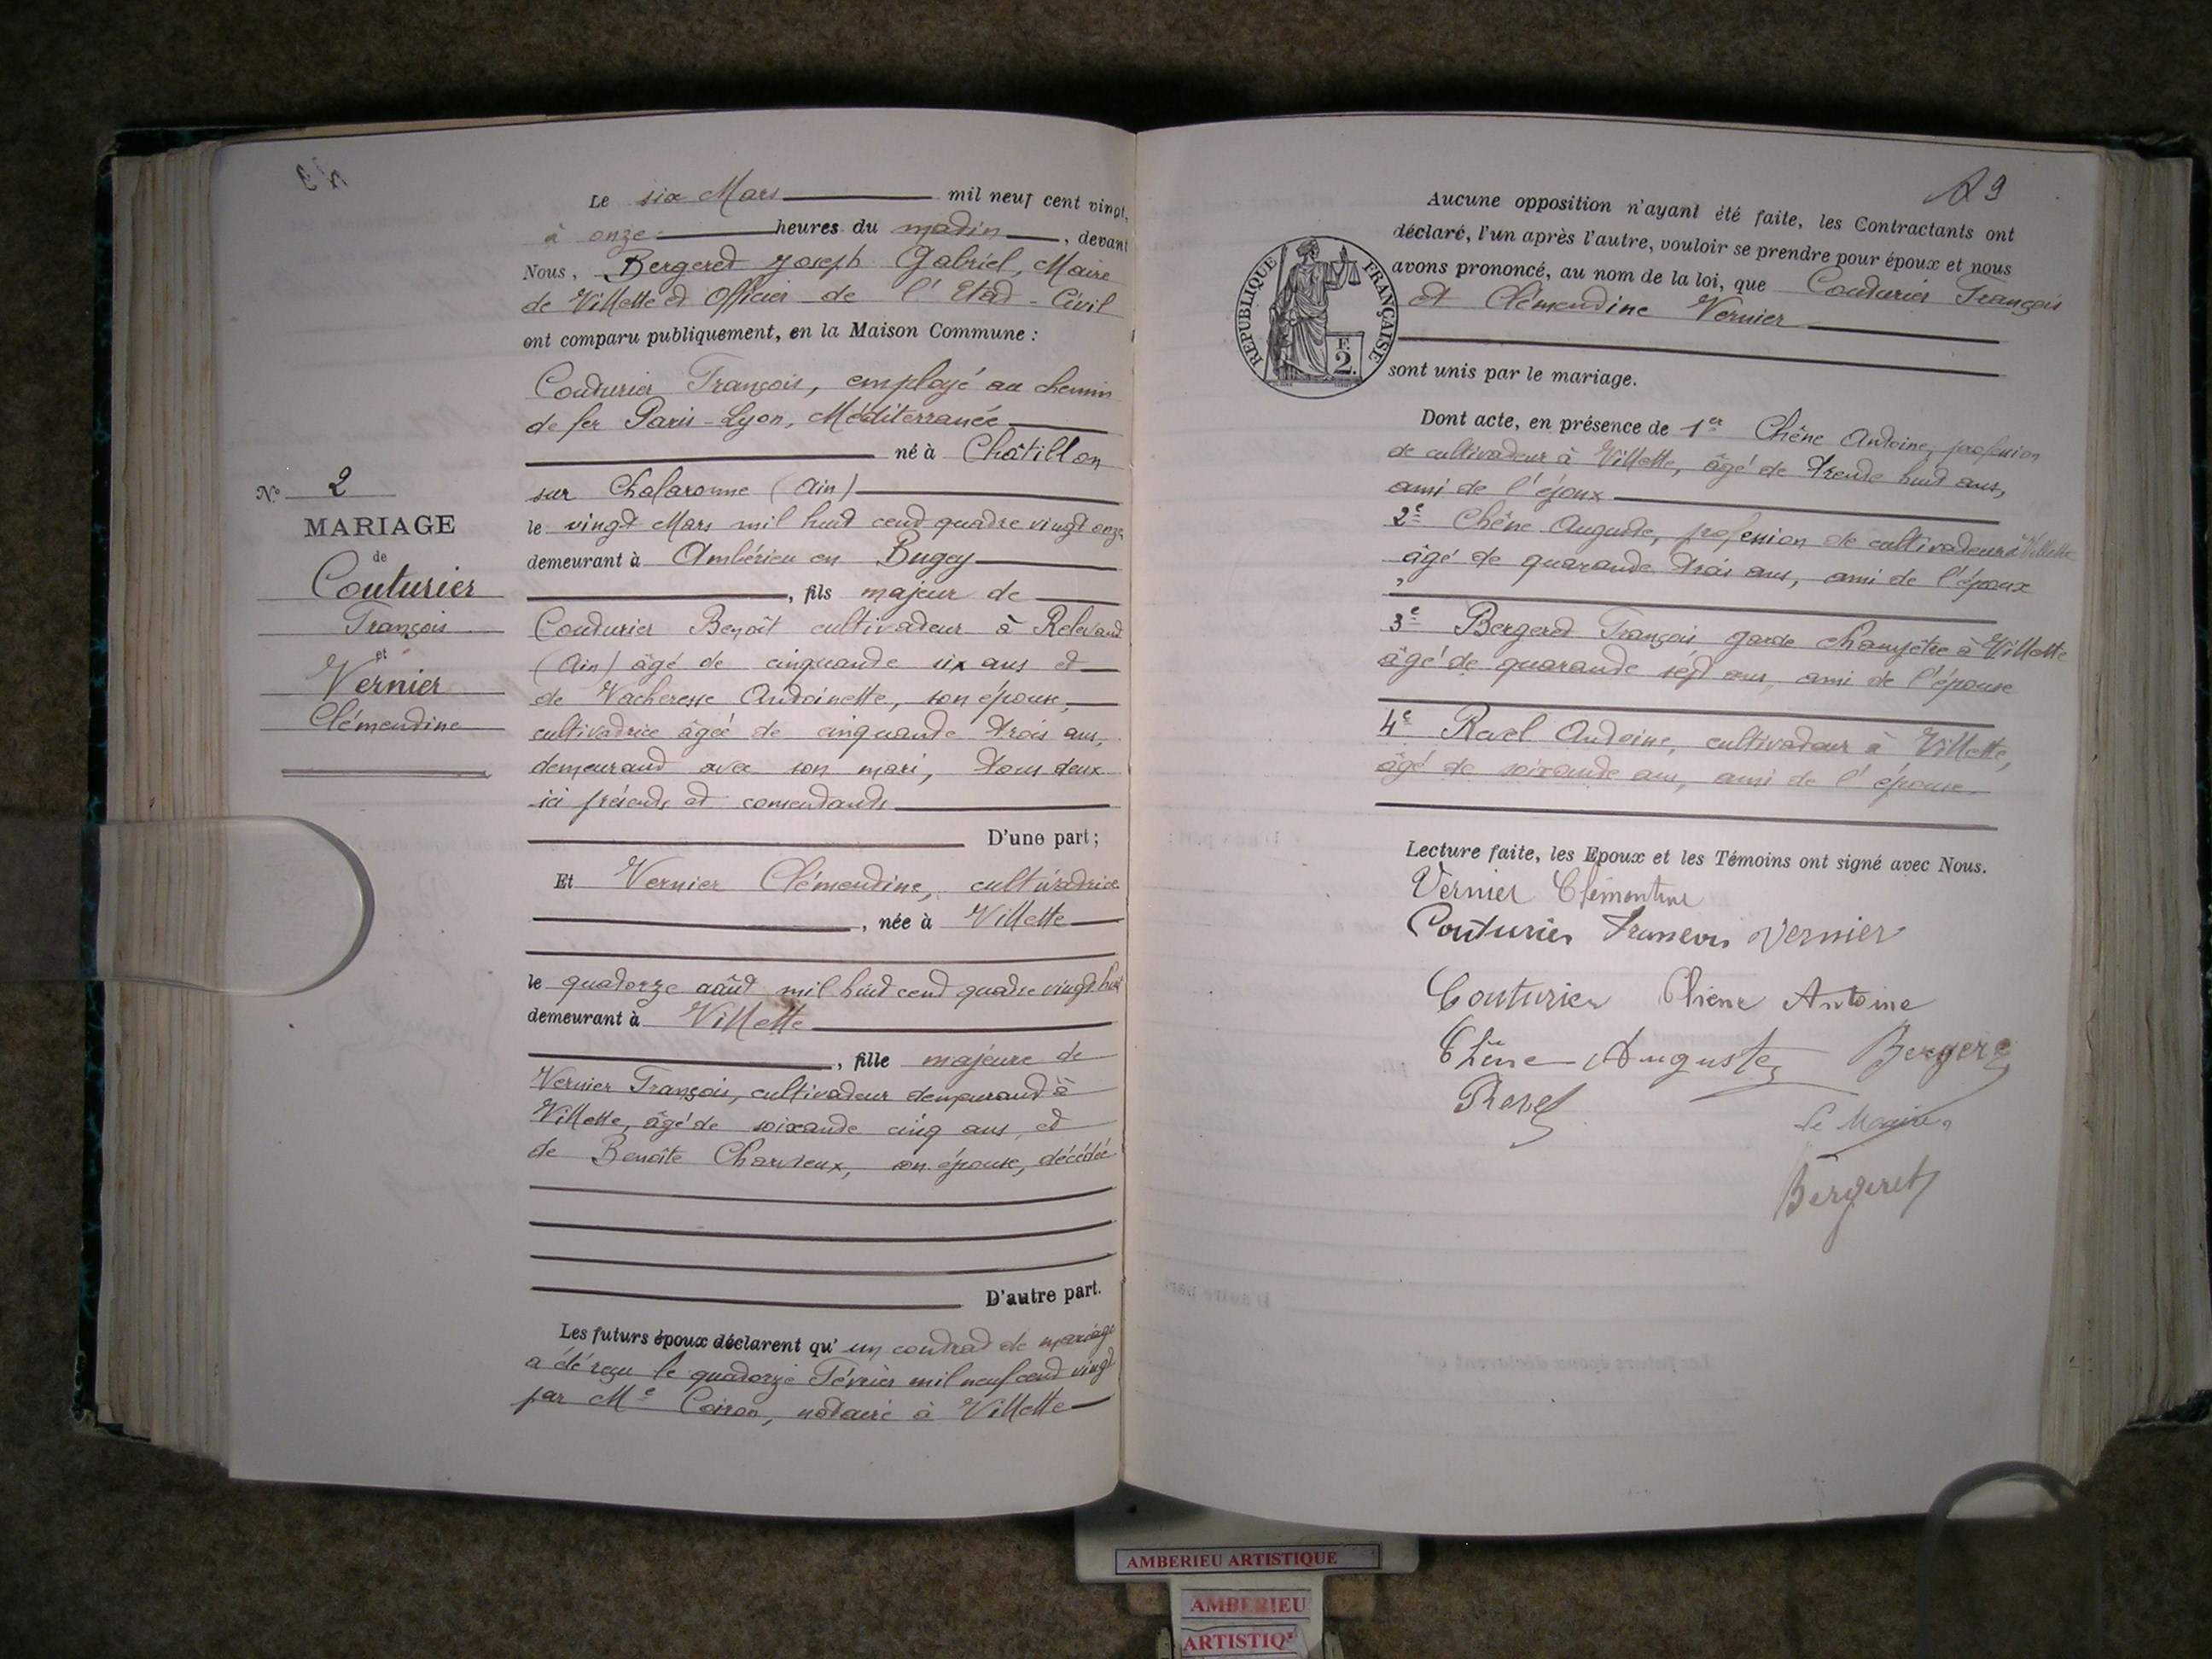 Le six Mars mil neuf cent vingt,
à onze heures du matin, devant
Nous, Bergeret Joseph Gabriel, Maire
de Villette et Officier de l'Etat-Civil
ont comparu publiquement, en la Maison Commune :
Couturier François, employé au chemin
de fer Paris-Lyon, Méditerranée
né à Châtillon
sur Chalaronne (Ain)
le vingt Mars mil huit cent quatre vingt onze
demeurant à Ambérieu en Bugey
, fils majeur de
Couturier Benoît cultivateur à Relevant
(Ain) âgé de cinquante six ans et
de Vacheresse Antoinette, son épouse,
cultivatrice âgée de cinquante trois ans,
demeurant avec son mari, tous deux
ici présents et consentants
D'une part ;
N° 2
MARIAGE
de
Couturier
François
et
Vernier
Clémentine
Et Vernier Clémentine, cultivatrice
, née à Villette
le quatorze août mil huit cent quatre vingt huit
demeurant à Villette
, fille majeure de
Vernier François, cultivateur demeurant à
Villette, âgé de soixante cinq ans, et
de Benoîte Charveux, son épouse, décédée
D'autre part.
Les futurs époux déclarent qu'un contrat de mariage
a été reçu le quatorze Février mil neuf cent vingt
par Me Coiron, notaire à Villette
Aucune opposition n'ayant été faite, les Contractants ont
déclaré, l'un après l'autre, vouloir se prendre pour époux et nous
avons prononcé, au nom de la loi, que Couturier François
et Clémentine Vernier
sont unis par le mariage.
RÉPUBLIQUE FRANÇAISE
F.
2.
Dont acte, en présence de 1er Chêne Antoine, profession
de cultivateur à Villette, âgé de trente huit ans,
ami de l'époux
2e Chêne Auguste, profession de cultivateur à Villette
âgé de quarante trois ans, ami de l'époux
3e Bergeret François garde champêtre à Villette
âgé de quarante sept ans, ami de l'épouse
4e Revel Antoine, cultivateur à Villette,
âgé de soixante ans, ami de l'épouse.
Lecture faite, les Epoux et les Témoins ont signé avec Nous.
Vernier Clémentine
Couturier Francois Vernier
Couturier Chene Antoine
Chêne Auguste Bergere
Revel
Le Maire,
Bergeret
AMBERIEU ARTISTIQUE
AMBERIEU
ARTISTIQ